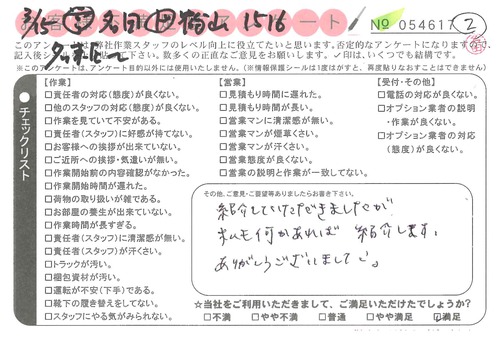 3/15
ート
№ 054617 ②
1516
このアンケートは弊社作業スタッフのレベル向上に役立てたいと思います。否定的なアンケートになりますので、
記入後シールを貼って下さい。数多くの正直なご意見をお願いします。✓印は、いくつでも結構です。
※このアンケートは、アンケート目的以外には使用いたしません。（※情報保護シールは1度はがすと、再度貼りなおすことはできません）
●チェックリスト
【作業】
□責任者の対応（態度）が良くない。
□他のスタッフの対応（態度）が良くない。
□作業を見ていて不安がある。
□責任者（スタッフ）に好感が持てない。
□お客様への挨拶が出来ていない。
□ご近所への挨拶・気遣いが無い。
□作業開始前の内容確認がなかった。
□作業開始時間が遅れた。
□荷物の取り扱いが雑である。
□お部屋の養生が出来ていない。
□作業時間が長すぎる。
□責任者（スタッフ）に清潔感が無い。
□責任者（スタッフ）が汗くさい。
□トラックが汚い。
□梱包資材が汚い。
□運転が不安（下手）である。
□靴下の履き替えをしてない。
□スタッフにやる気がみられない。
【営業】
□見積もり時間に遅れた。
□見積もり時間が長い。
□営業マンに清潔感が無い。
□営業マンが煙草くさい。
□営業マンが汗くさい。
□営業態度が良くない。
□営業の説明と作業が一致してない。
【受付・その他】
□電話の対応が良くない。
□オプション業者の説明
・作業が良くない。
□オプション業者の対応
（態度）が良くない。
その他、ご意見・ご要望等ありましたらお書き下さい。
紹介していただきましたが
私も何かあれば 紹介します。
ありがとうございました。
☆当社をご利用いただきまして、ご満足いただけましたでしょうか？
□不満 □やや不満 □普通 □やや満足 ☑満足